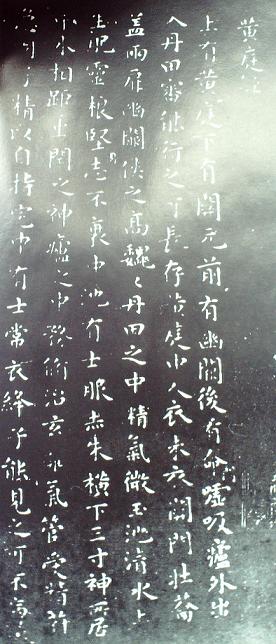 黃庭經
上有黃庭下有關元前有幽關後有命噓吸廬外出
入丹田審能行之可長存黃庭中人衣朱衣關門壯籥
蓋兩扉幽關俠之高魏魏丹田之中精氣微玉池清水上
生肥靈根堅志不衰中池有士服赤朱橫下三寸神所居
中外相距重閉之神廬之中務脩治玄 氣管受精符
急固子精以自持宅中有士常衣絳子能見之可不病